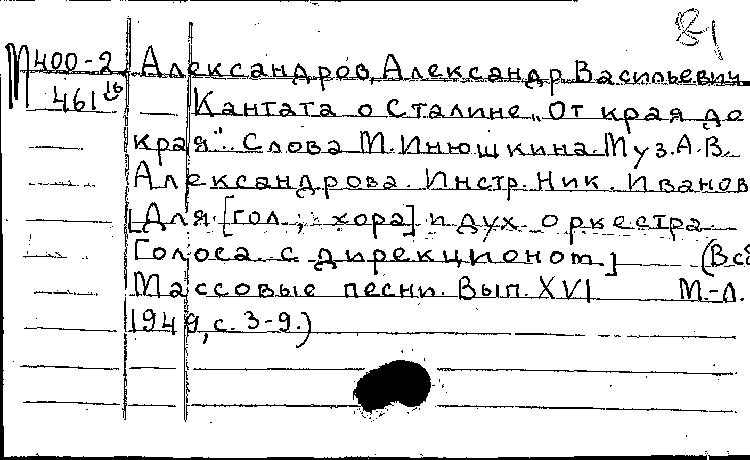 81
М400-2 Александров, Александр Васильевич
461 16 Кантата о Сталине „От края до
края". Слова М. Инюшкина. Муз. А.В.
Александрова. Инстр. Ник. Иванов
[Для [гол., хора] и дух. оркестра
Голоса с дирекционом.] (В сб
Массовые песни. Вып. XVI М.-Л.
1949, с. 3-9.)